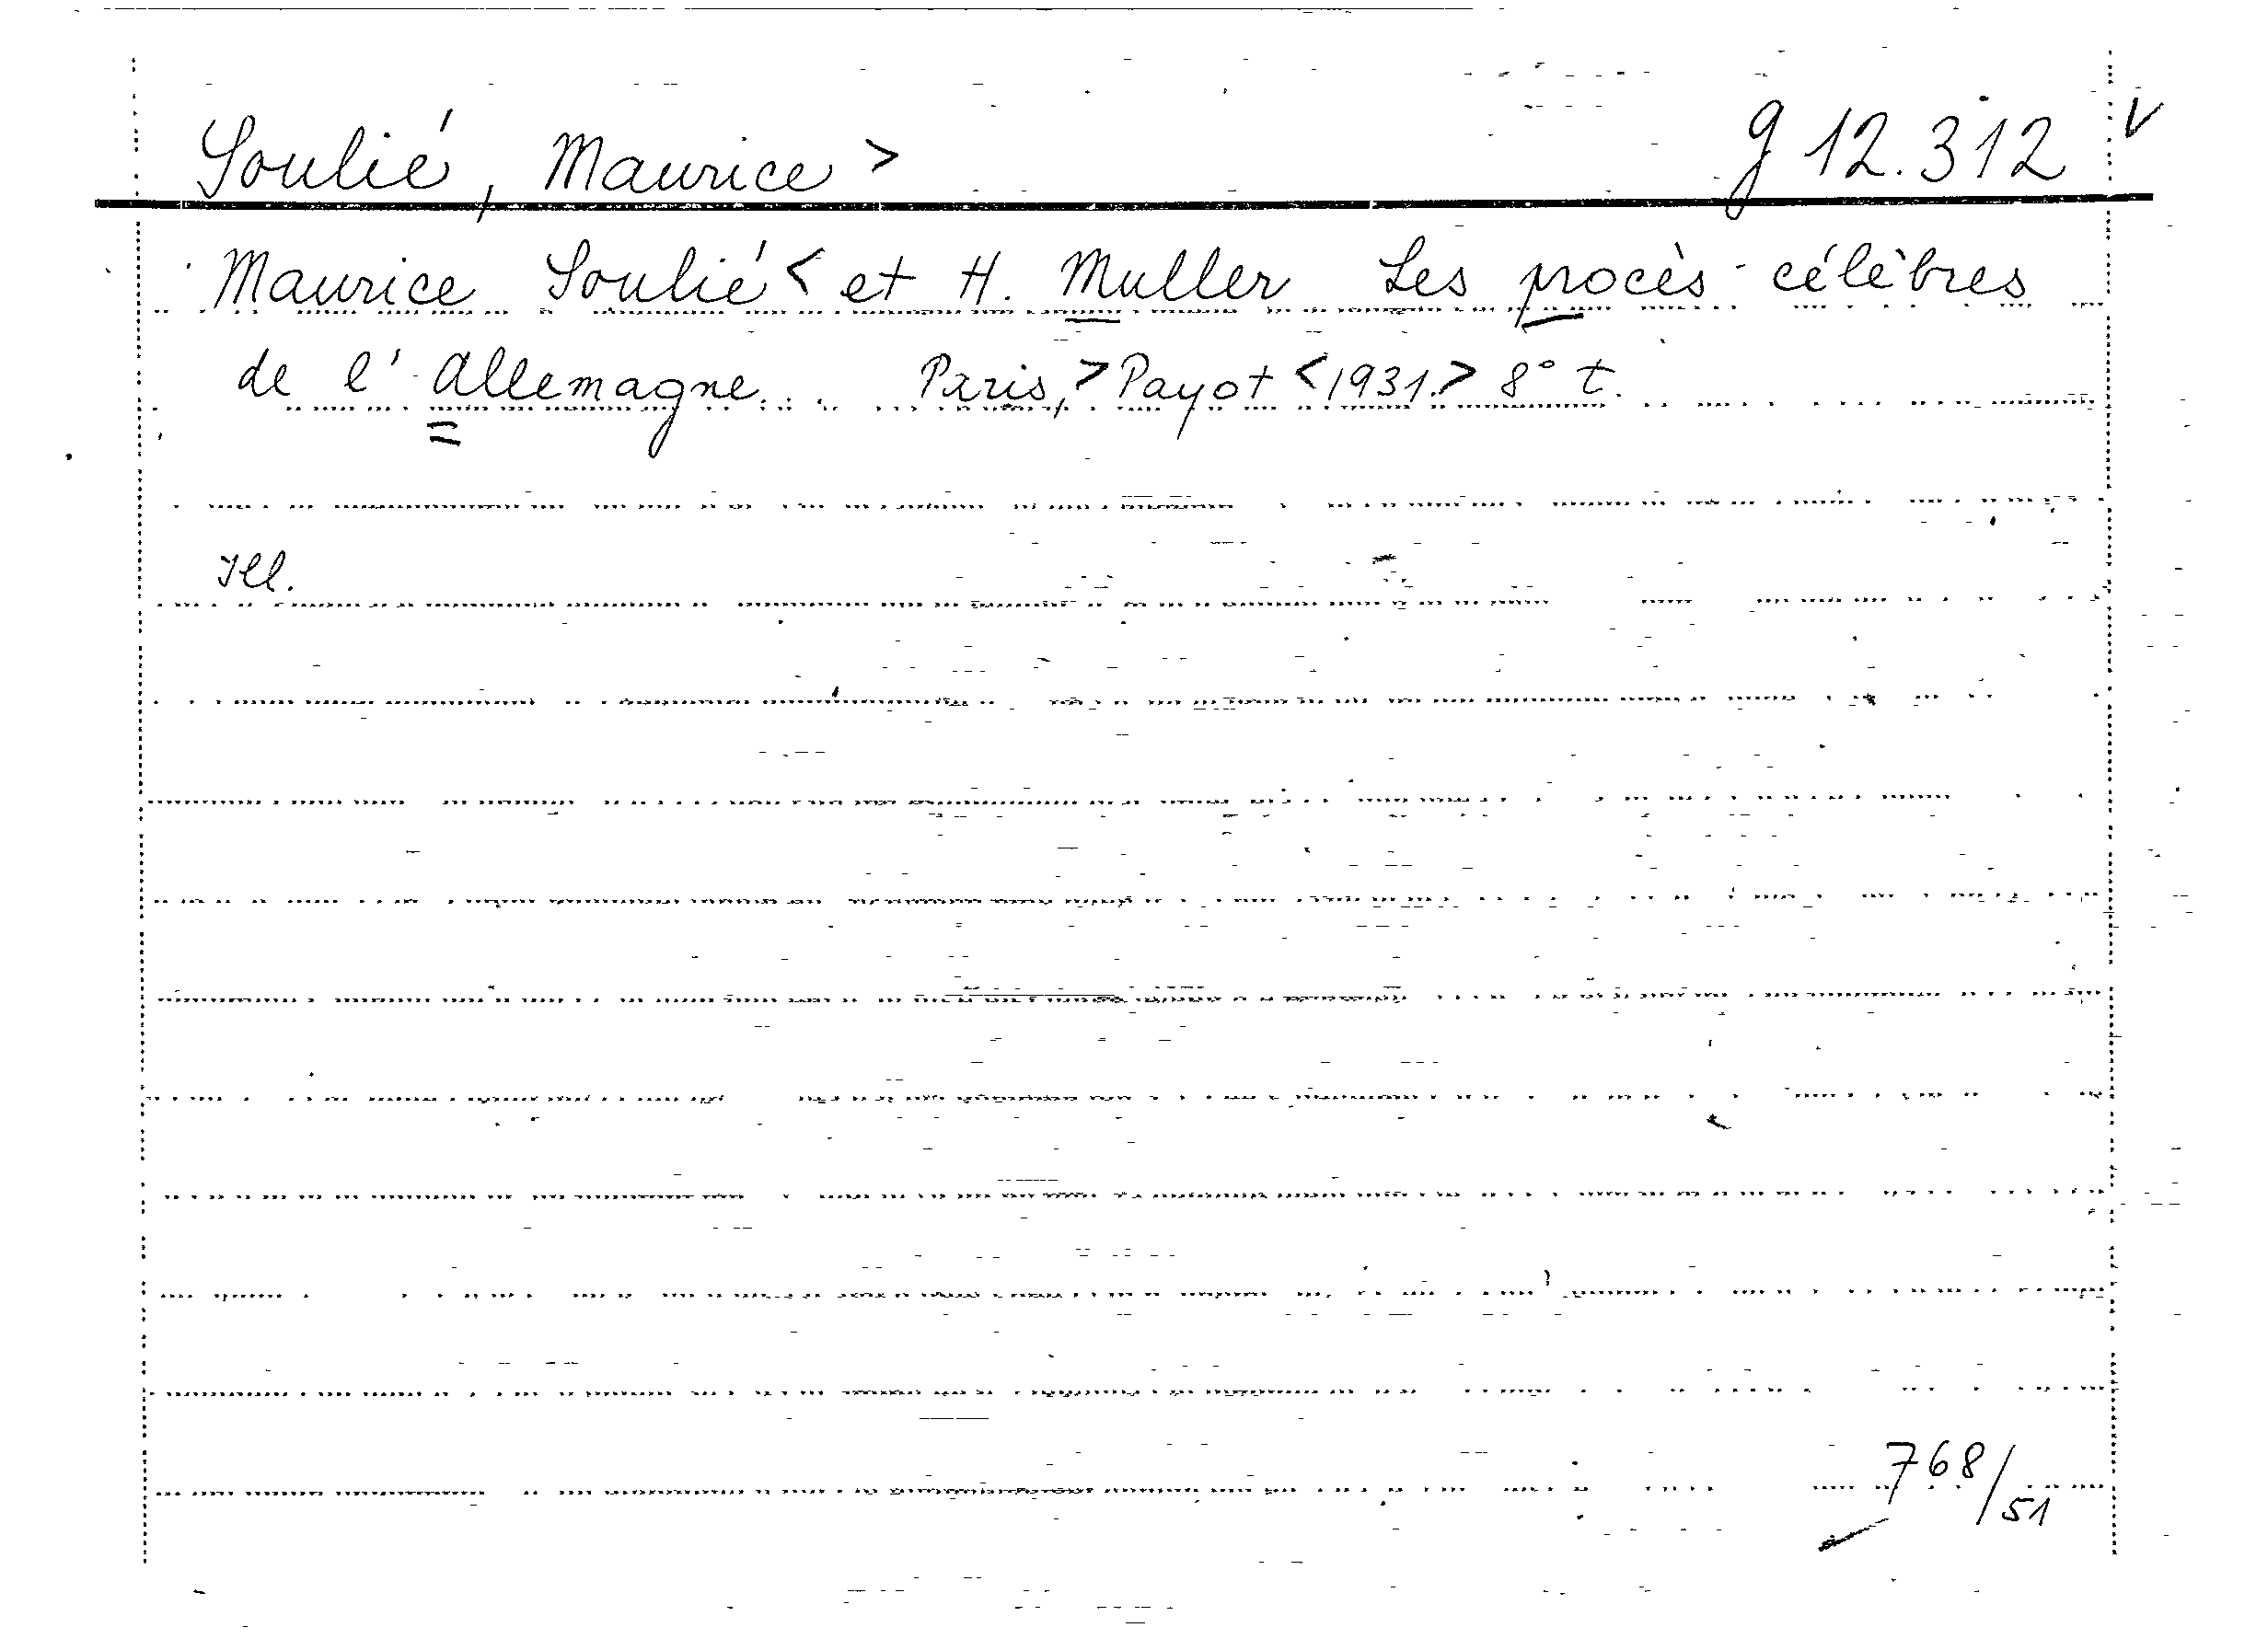 Soulié, Maurice > g 12.312 v
Maurice Soulié < et H. Muller Les procès célèbres
de l'Allemagne... Paris, > Payot < 1931. > 8° t.
Ill.
768/51